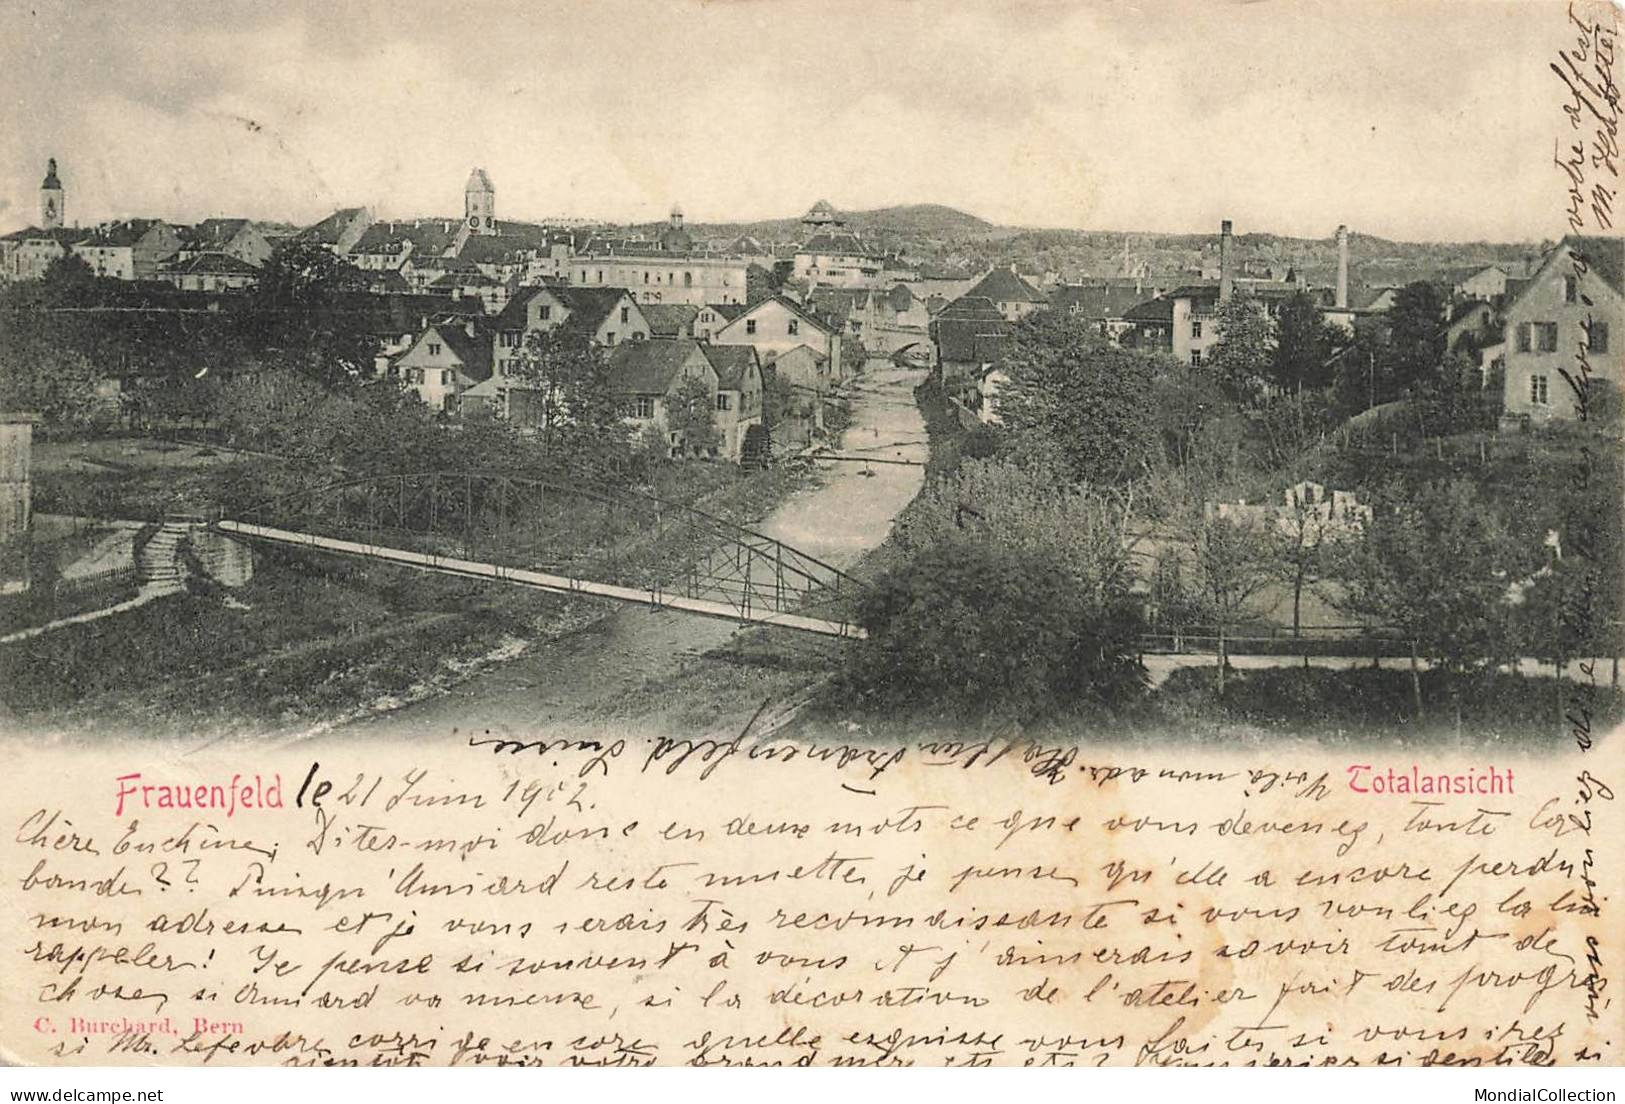 Frauenfeld le 21 Juin 1902.
Totalansicht
Chère Euchène, Dites-moi donc en deux mots ce que vous devenez, toute la
bande?? Puisqu'Amiard reste muette, je pense qu'elle a encore perdu
mon adresse et je vous serais très reconnaissante si vous vouliez la lui
rappeler! Je pense si souvent à vous et j'aimerais savoir tant de
choses, si Amiard va mieux, si la décoration de l'atelier fait des progrès
C. Burchard, Bern
si Mr. Lefevbre corrige encore quelle esquisse vous faites si vous irez
bientôt voir votre grand'mère etc etc? Vous seriez si gentille si
vous vouliez
chose,
votre affect
M. Hafter
Voilà mon adr. Frauenfeld. Suisse.
delcampe.net
MondialCollection